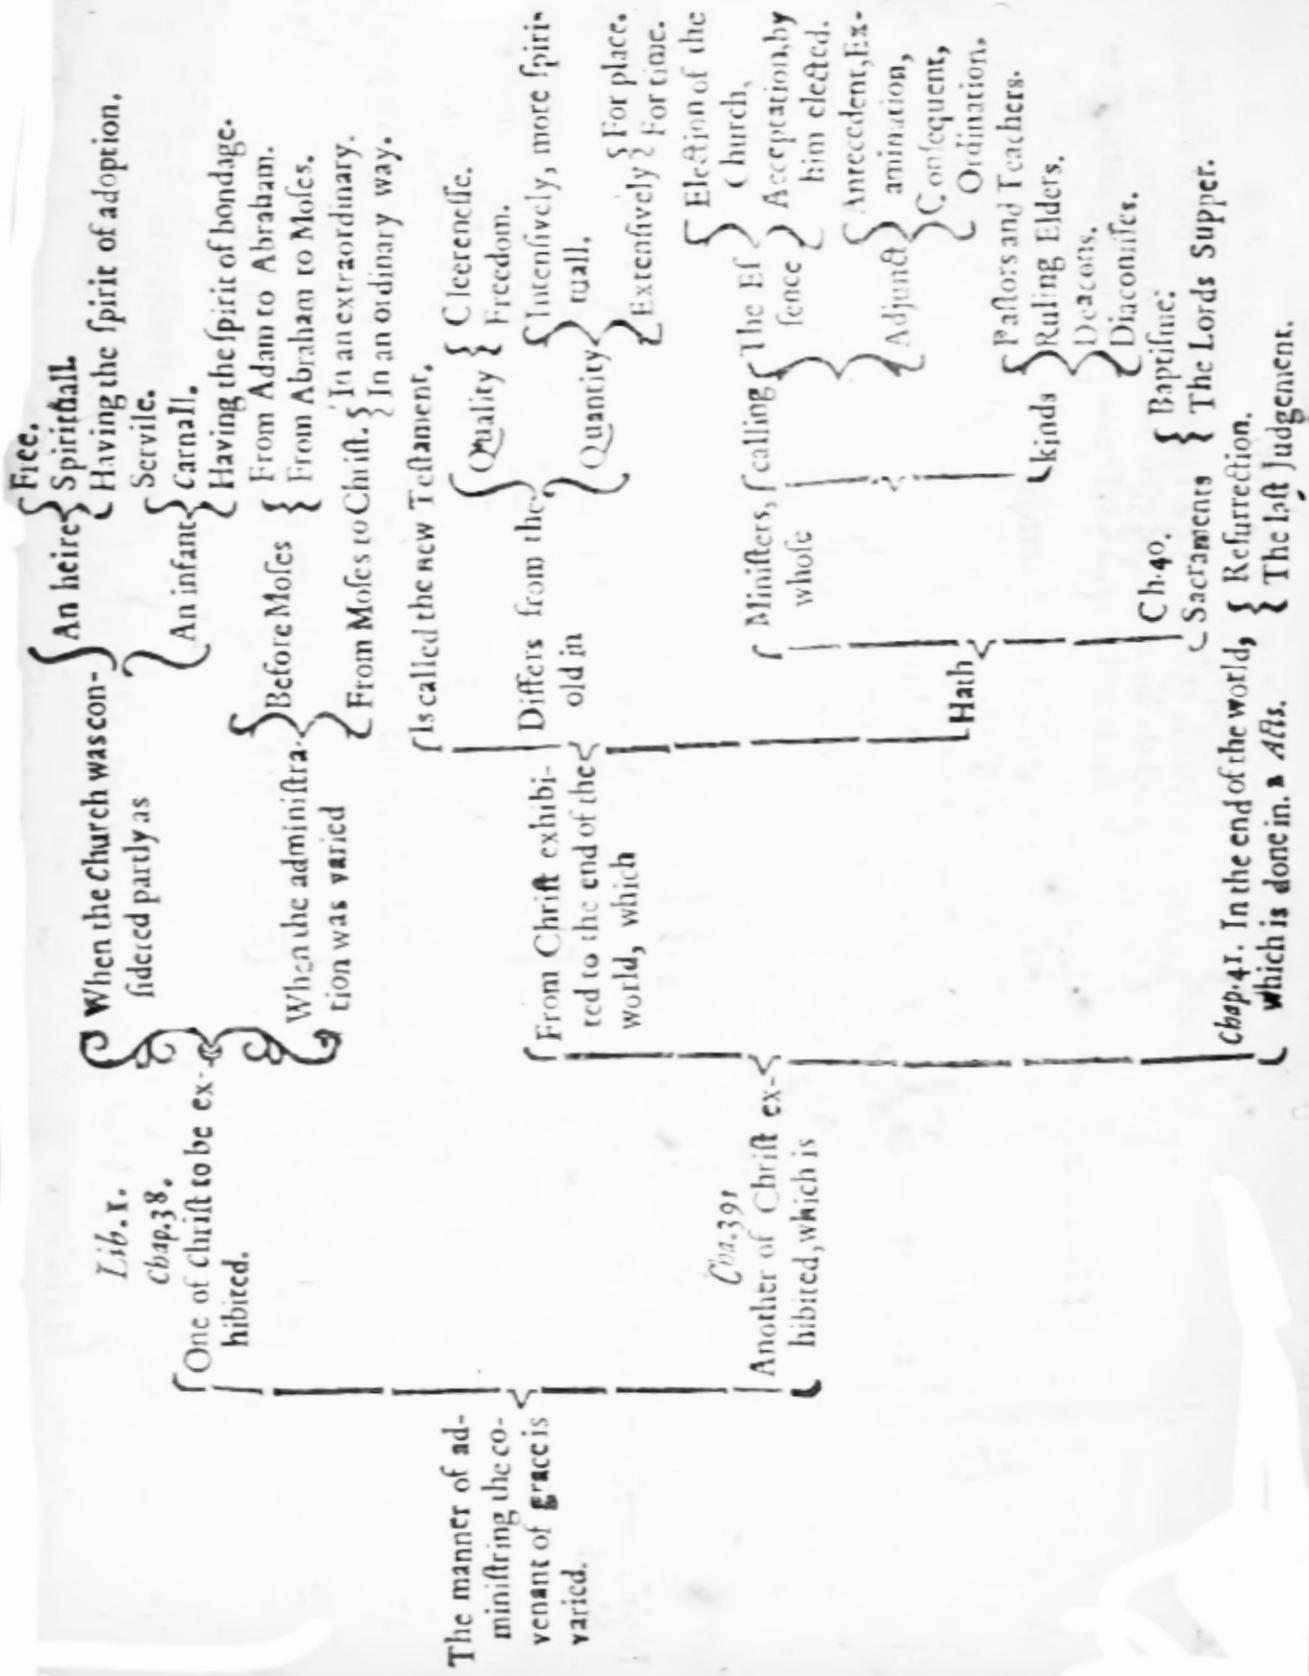 The manner of ad-
miniſtring the co-
venant of grace is
varied.
Lib. 1.
Chap. 38.
One of Chriſt to be ex-
hibited.
When the Church was con-
ſidered partly as
An heire
Free.
Spirituall.
Having the ſpirit of adoption.
An infant
Servile.
Carnall.
Having the ſpirit of bondage.
When the adminiſtra-
tion was varied
Before Moſes
From Adam to Abraham.
From Abraham to Moſes.
From Moſes to Chriſt.
In an extraordinary.
In an ordinary way.
Another of Chriſt ex-
hibited, which is
From Chriſt exhibi-
ted to the end of the
world, which
Is called the new Teſtament.
Differs from the
old in
Quality
Cleereneſſe.
Freedom.
Quantity
Intenſively, more ſpiri-
tuall.
Extenſively
For place.
For time.
Hath
Miniſters,
whoſe
calling
The Eſ
ſence
Election of the
Church,
Acceptation, by
him elected.
Adjunct
Antecedent, Ex-
amination,
Conſequent,
Ordination.
kinds
Paſtors and Teachers.
Ruling Elders.
Deacons.
Diaconniſes.
Ch. 40.
Sacraments
Baptiſme.
The Lords Supper.
Chap. 41. In the end of the world,
which is done in. 2 Acts.
Reſurrection.
The laſt Judgement.